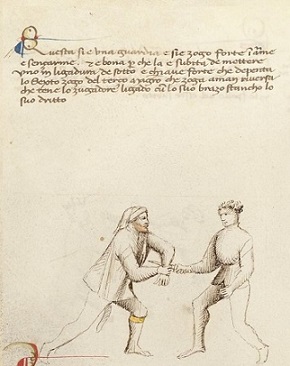 Questa sie una guardia e sie zogo forte c arme
e senç arme. E e bona p che la e subita de mettere
uno in ligadura de sotto e chiave forte che depenta
lo sexto zogo del terço a rigro che zoga a man riversa
che tene lo zugadore ligado cũ lo suo brazo stancho lo
suo dritto